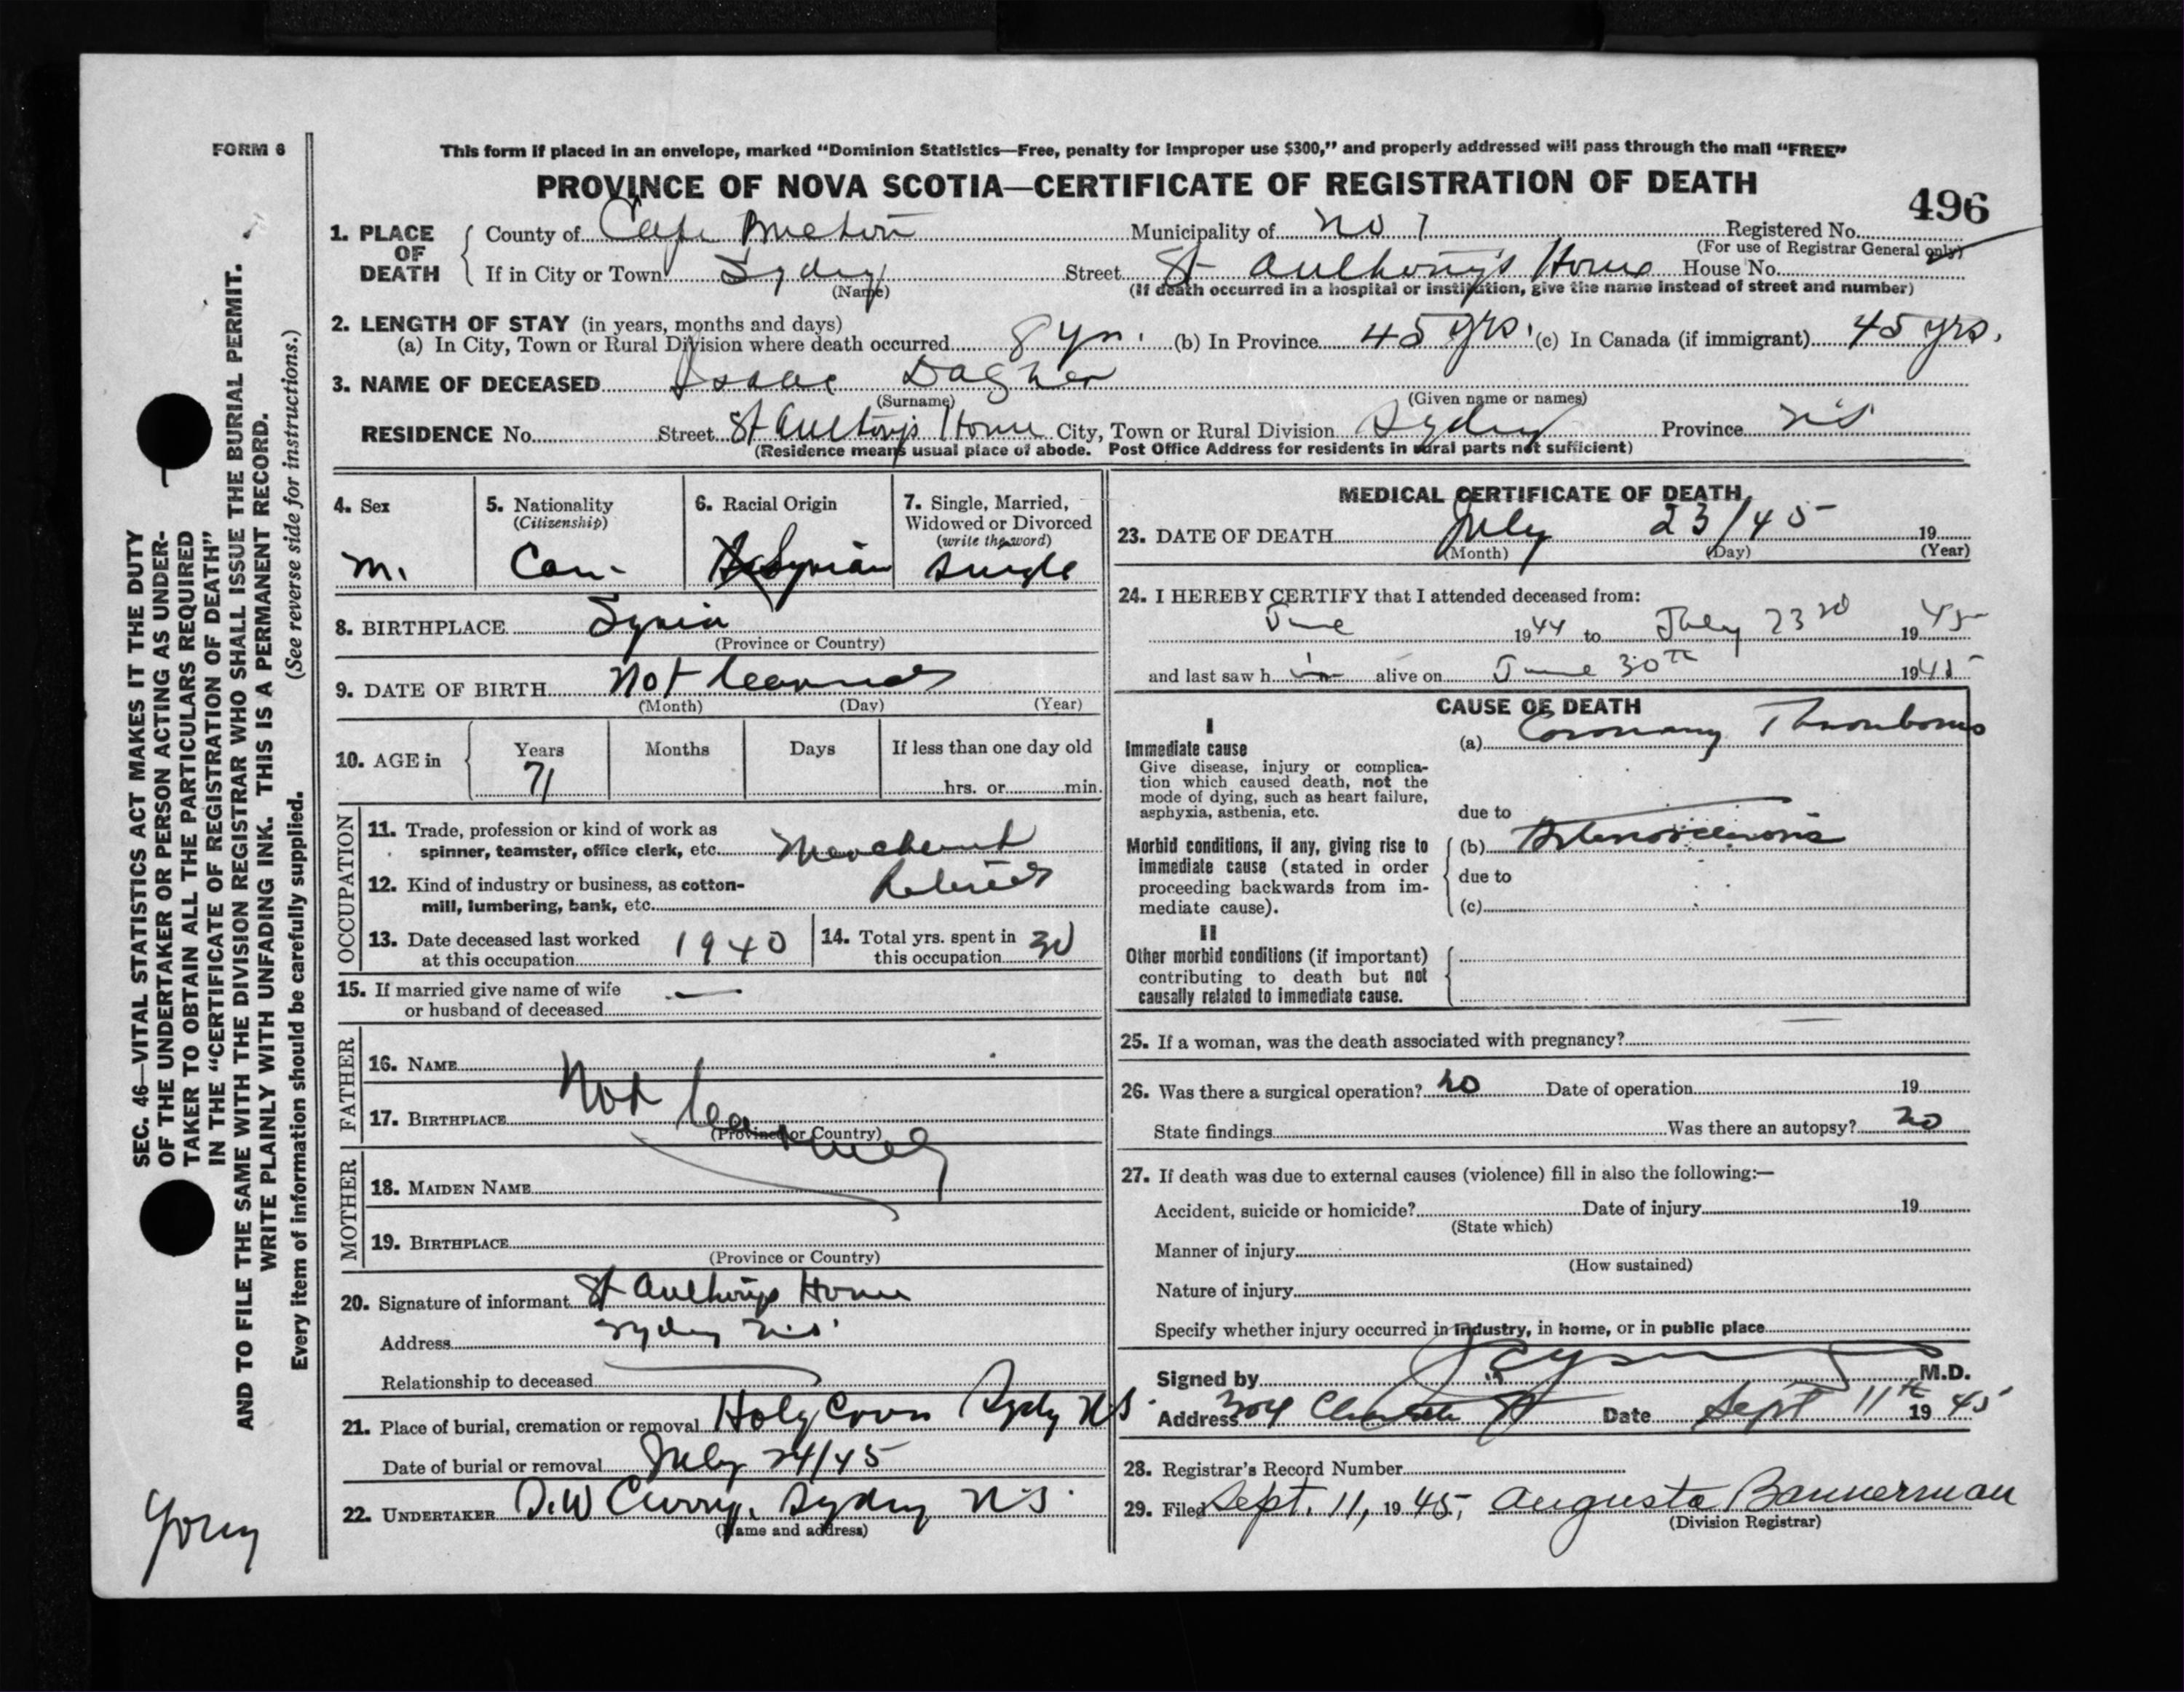 FORM 6
This form if placed in an envelope, marked "Dominion Statistics—Free, penalty for improper use $300," and properly addressed will pass through the mail "FREE"
PROVINCE OF NOVA SCOTIA—CERTIFICATE OF REGISTRATION OF DEATH
496
1. PLACE OF DEATH
County of Cape Breton Municipality of No 7 Registered No.
(For use of Registrar General only)
If in City or Town Sydney Street St Anthony's Home House No.
(Name) (If death occurred in a hospital or institution, give the name instead of street and number)
2. LENGTH OF STAY (in years, months and days)
(a) In City, Town or Rural Division where death occurred 8 yrs. (b) In Province 45 yrs. (c) In Canada (if immigrant) 45 yrs.
3. NAME OF DECEASED Isaac Dagher
(Surname) (Given name or names)
RESIDENCE No. Street St Anthony's Home City, Town or Rural Division Sydney Province NS
(Residence means usual place of abode. Post Office Address for residents in rural parts not sufficient)
4. Sex
M.
5. Nationality
(Citizenship)
Can.
6. Racial Origin
Syrian
7. Single, Married,
Widowed or Divorced
(write the word)
Single
8. BIRTHPLACE Syria
(Province or Country)
9. DATE OF BIRTH Not learned
(Month) (Day) (Year)
10. AGE in
Years Months Days If less than one day old
71 hrs. or min.
OCCUPATION
11. Trade, profession or kind of work as
spinner, teamster, office clerk, etc. Merchant
12. Kind of industry or business, as cotton-
mill, lumbering, bank, etc. Retired
13. Date deceased last worked
at this occupation 1940
14. Total yrs. spent in
this occupation 30
15. If married give name of wife
or husband of deceased —
FATHER
16. NAME
17. BIRTHPLACE
Not learned
(Province or Country)
MOTHER
18. MAIDEN NAME
19. BIRTHPLACE
(Province or Country)
20. Signature of informant St Anthony's Home
Address Sydney N.S.
Relationship to deceased
21. Place of burial, cremation or removal Holy Cross Sydney NS
Date of burial or removal July 24/45
22. UNDERTAKER D.W Curry, Sydney N.S.
(Name and address)
MEDICAL CERTIFICATE OF DEATH
23. DATE OF DEATH July 23/45 19
(Month) (Day) (Year)
24. I HEREBY CERTIFY that I attended deceased from:
June 1944 to July 23rd 1945
and last saw him alive on June 30th 1945
CAUSE OF DEATH
I
Immediate cause
Give disease, injury or complica-
tion which caused death, not the
mode of dying, such as heart failure,
asphyxia, asthenia, etc.
(a) Coronary Thrombosis
due to
Morbid conditions, if any, giving rise to
immediate cause (stated in order
proceeding backwards from im-
mediate cause).
(b) Arteriosclerosis
due to
(c)
II
Other morbid conditions (if important)
contributing to death but not
causally related to immediate cause.
25. If a woman, was the death associated with pregnancy?
26. Was there a surgical operation? no Date of operation 19
State findings Was there an autopsy? no
27. If death was due to external causes (violence) fill in also the following:—
Accident, suicide or homicide? Date of injury 19
(State which)
Manner of injury
(How sustained)
Nature of injury
Specify whether injury occurred in industry, in home, or in public place
Signed by M.D.
Address 304 Charlotte St Date Sept 11th 1945
28. Registrar's Record Number
29. Filed Sept. 11, 1945, Augusta Bannerman
(Division Registrar)
SEC. 46—VITAL STATISTICS ACT MAKES IT THE DUTY
OF THE UNDERTAKER OR PERSON ACTING AS UNDER-
TAKER TO OBTAIN ALL THE PARTICULARS REQUIRED
IN THE "CERTIFICATE OF REGISTRATION OF DEATH"
AND TO FILE THE SAME WITH THE DIVISION REGISTRAR WHO SHALL ISSUE THE BURIAL PERMIT.
WRITE PLAINLY WITH UNFADING INK. THIS IS A PERMANENT RECORD.
Every item of information should be carefully supplied. (See reverse side for instructions.)